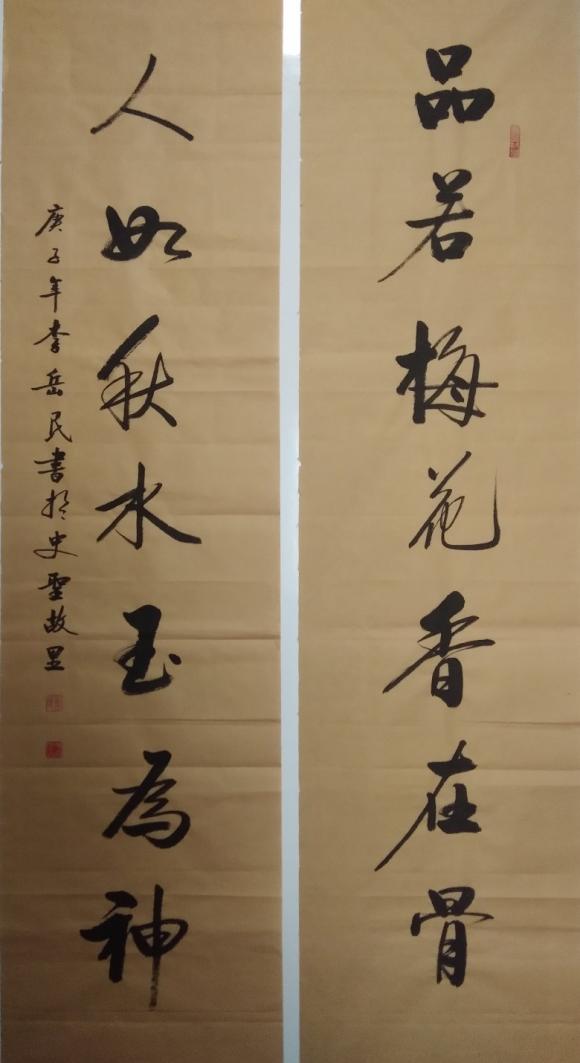 品若梅花香在骨
人如秋水玉為神
庚子年李岳民書於史聖故里